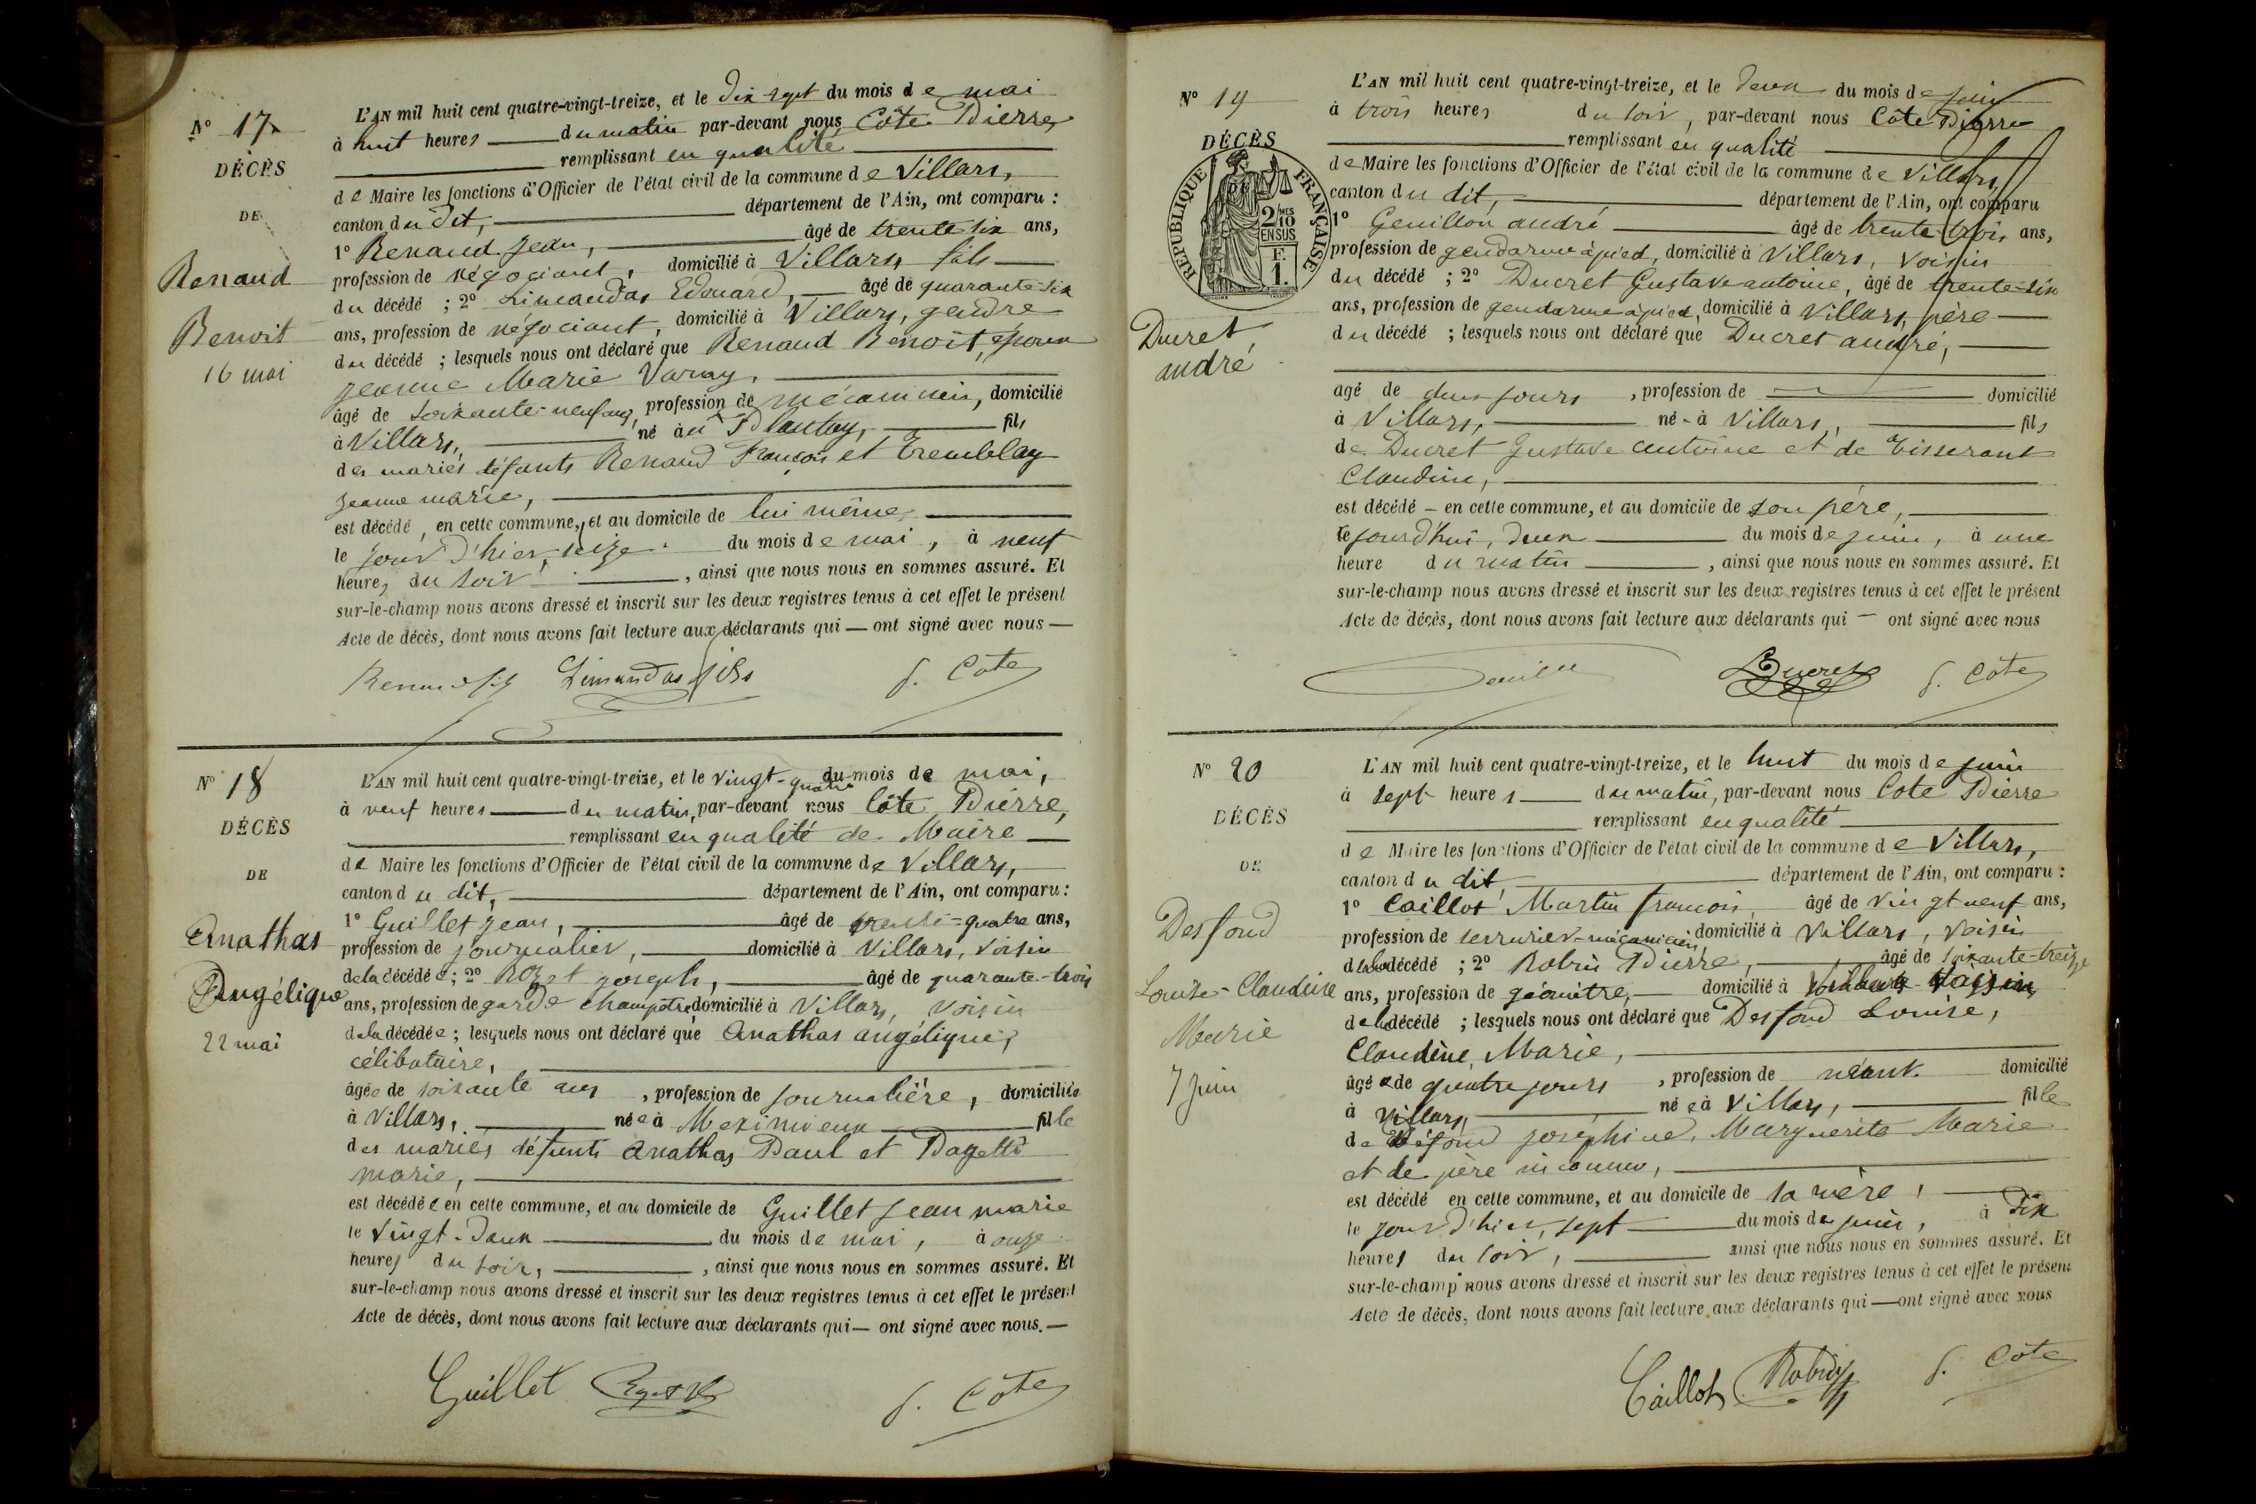 N° 17
DÉCÈS
DE
Renaud
Benoit
16 mai
L'AN mil huit cent quatre-vingt-treize, et le dix sept du mois de mai
à huit heures du matin par-devant nous Côte Pierre,
remplissant en qualité
de Maire les fonctions d'Officier de l'état civil de la commune de Villars,
canton du dit, département de l'Ain, ont comparu :
1° Renaud Jean, âgé de trente six ans,
profession de négociant, domicilié à Villars fils
du décédé ; 2° Limandas Edouard, âgé de quarante-six
ans, profession de négociant, domicilié à Villars, gendre
du décédé ; lesquels nous ont déclaré que Renaud Benoit, époux
Jeanne Marie Varay,
âgé de soixante-neuf ans, profession de mécanicien, domicilié
à Villars, né au Plantay, fils
des mariés défunts Renaud François et Tremblay
Jeanne marie,
est décédé, en cette commune, et au domicile de lui même,
le jour d'hier, seize du mois de mai, à neuf
heures du soir, ainsi que nous nous en sommes assuré. Et
sur-le-champ nous avons dressé et inscrit sur les deux registres tenus à cet effet le présent
Acte de décès, dont nous avons fait lecture aux déclarants qui — ont signé avec nous —
Renaud fils Limandas fils P. Côte
N° 18
DÉCÈS
DE
Anathas
Angélique
22 mai
L'AN mil huit cent quatre-vingt-treize, et le vingt-quatre du mois de mai,
à neuf heures du matin, par-devant nous Côte Pierre,
remplissant en qualité de Maire
de Maire les fonctions d'Officier de l'état civil de la commune de Villars,
canton du dit, département de l'Ain, ont comparu :
1° Guillet Jean, âgé de trente-quatre ans,
profession de journalier, domicilié à Villars, voisin
de la décédée ; 2° Rozet Joseph, âgé de quarante-trois
ans, profession de garde champêtre domicilié à Villars, voisin
de la décédée ; lesquels nous ont déclaré que Anathas angélique,
célibataire,
âgée de soixante ans, profession de journalière, domiciliée
à Villars, née à Meximieux fille
des mariés défunts Anathas Paul et
marie,
est décédée en cette commune, et au domicile de Guillet Jean marie
le vingt-deux du mois de mai, à onze
heures du soir, ainsi que nous nous en sommes assuré. Et
sur-le-champ nous avons dressé et inscrit sur les deux registres tenus à cet effet le présent
Acte de décès, dont nous avons fait lecture aux déclarants qui — ont signé avec nous. —
Guillet P. Côte
N° 19
DÉCÈS
RÉPUBLIQUE FRANÇAISE
2/10 MES
EN SUS
F.
1.
Ducret
andré
L'AN mil huit cent quatre-vingt-treize, et le deux du mois de juin
à trois heures du soir, par-devant nous Côte Pierre
remplissant en qualité
de Maire les fonctions d'Officier de l'état civil de la commune de Villars,
canton du dit, département de l'Ain, ont comparu
1° Genillon andré âgé de trente-trois ans,
profession de gendarme à pied, domicilié à Villars, voisin
du décédé ; 2° Ducret Gustave antoine, âgé de trente-six
ans, profession de gendarme à pied, domicilié à Villars, père
du décédé ; lesquels nous ont déclaré que Ducret andré,
agé de deux jours, profession de domicilié
à Villars, né à Villars, fils
de Ducret Gustave antoine et de Tisserant
Claudine,
est décédé — en cette commune, et au domicile de son père,
le jourd'hui, deux du mois de juin, à une
heure du matin, ainsi que nous nous en sommes assuré. Et
sur-le-champ nous avons dressé et inscrit sur les deux registres tenus à cet effet le présent
Acte de décès, dont nous avons fait lecture aux déclarants qui — ont signé avec nous
Ducret P. Côte
N° 20
DÉCÈS
DE
Desfond
Louise-Claudine
Marie
7 Juin
L'AN mil huit cent quatre-vingt-treize, et le huit du mois de juin
à sept heures du matin, par-devant nous Côte Pierre
remplissant en qualité
de Maire les fonctions d'Officier de l'état civil de la commune de Villars,
canton du dit, département de l'Ain, ont comparu :
1° Caillot Martin françois, âgé de vingt neuf ans,
profession de serrurier-mécanicien, domicilié à Villars, voisin
de la décédé ; 2° Robin Pierre, âgé de soixante-treize
ans, profession de géomètre, domicilié à Villars voisin,
de la décédé ; lesquels nous ont déclaré que Desfond Louise,
Claudine, Marie,
âgée de quatre jours, profession de néant domicilié
à Villars, née à Villars, fille
de Défond Joséphine, Marguerite Marie
et de père inconnu,
est décédé en cette commune, et au domicile de sa mère,
le jour d'hier, sept du mois de juin, à dix
heures du soir, ainsi que nous nous en sommes assuré. Et
sur-le-champ nous avons dressé et inscrit sur les deux registres tenus à cet effet le présent
Acte de décès, dont nous avons fait lecture aux déclarants qui — ont signé avec nous
Caillot Robin P. Côte